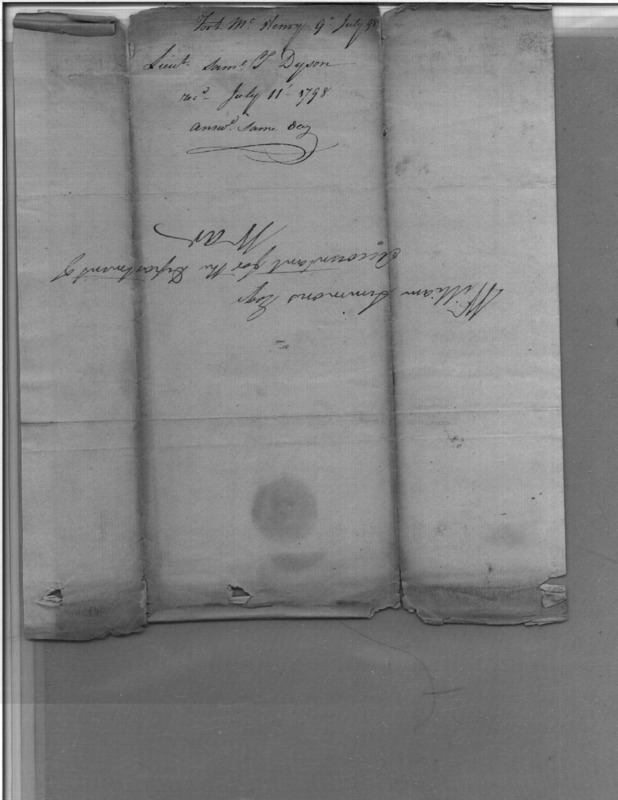 Fort Mc Henry 9 July 98
Lieut. Saml T Dyson
recd. July 11 1798
answd. Same day
William Simmons Esqr
Accountant for the Department of
War